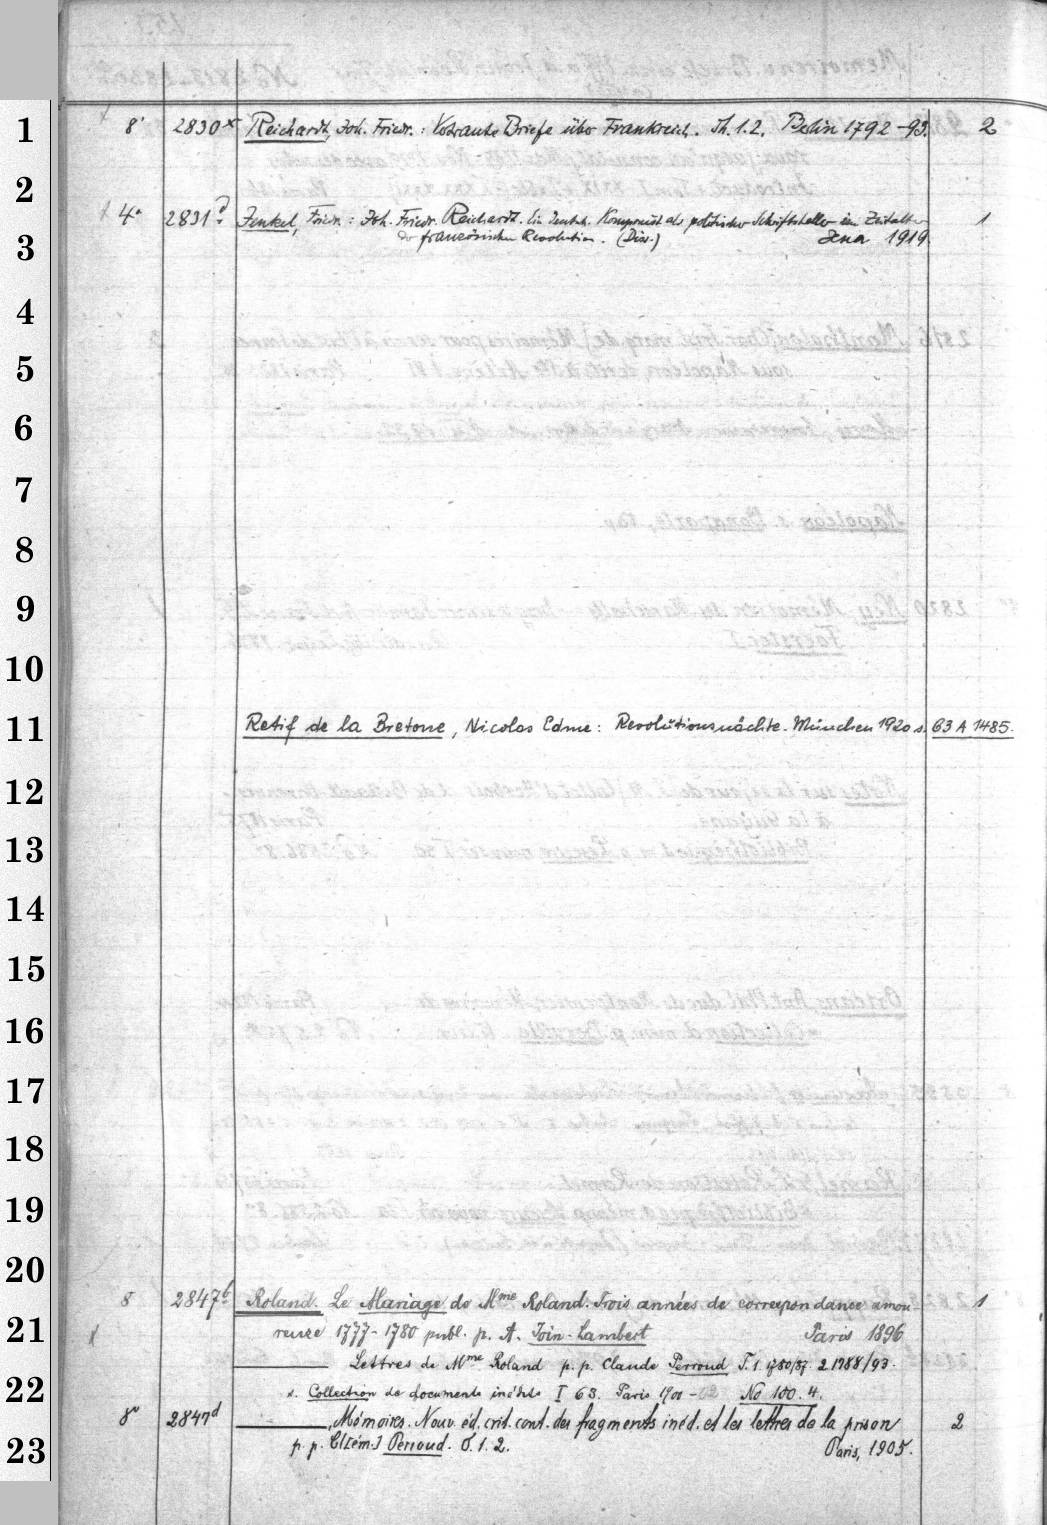 1
8° 2830x Reichardt, Joh. Friedr.: Vertraute Briefe über Frankreich. Th. 1.2. Berlin 1792-93. 2
2
4° 2831 Zenkel, Friedr.: Joh. Friedr. Reichardt. Ein deutsch. Komponist als politischer Schriftsteller im Zeitalter 1
3
der französischen Revolution. (Diss.) Jena 1919.
4
5
6
7
8
9
10
11
Retif de la Bretonne, Nicolas Edme: Revolutionsnächte. München 1920 s. 63 A 1485.
12
13
14
15
16
17
18
19
20
8 2847b Roland. Le Mariage de Mme Roland. Trois années de correspondance amou- 1
21
reuse 1777-1780 publ. p. A. Join-Lambert Paris 1896
Lettres de Mme Roland p. p. Claude Perroud T. 1. 1780/87. 2 1788/93.
22
s. Collection de documents inédits I 63. Paris 1900-02 No 100. 4.
8° 2847d Mémoires. Nouv. éd. crit. cont. des fragments inéd. et les lettres de la prison 2
23
p. p. Cl[ém.] Perroud. T. 1. 2. Paris, 1905.